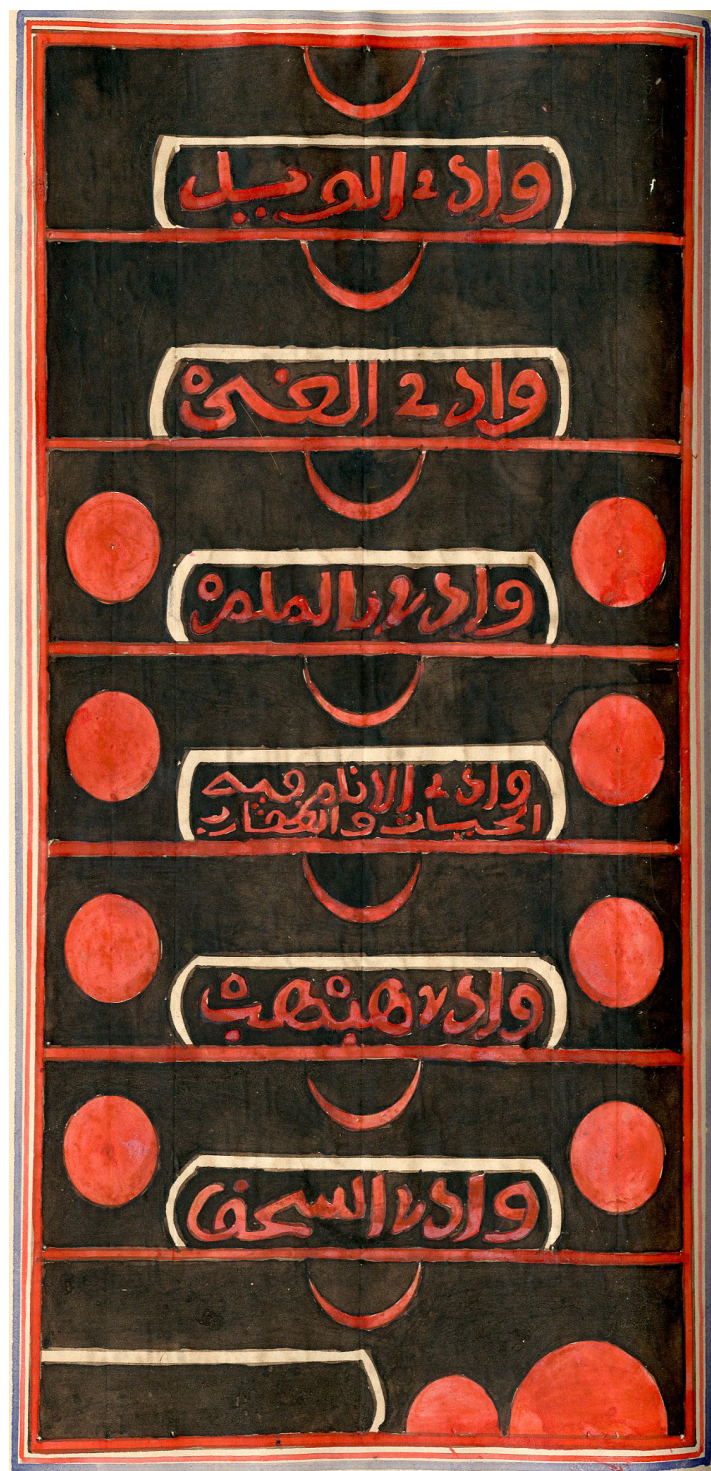 وادي الويل
وادي الغي
وادي يالملم
وادي الاثام فيه
الحيات والعقارب
وادي هبهب
وادي السحق